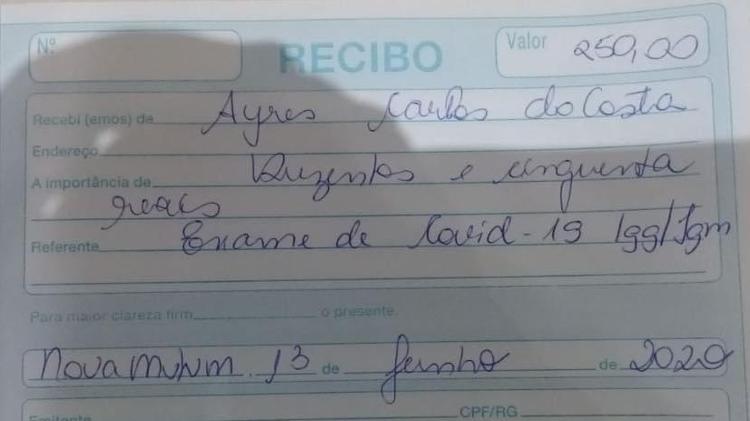 Nº
RECIBO
Valor 250,00
Recebi (emos) de Ayres Carlos da Costa
Endereço
A importância de Duzentos e cinquenta
reais
Referente Exame de Covid-19 Igg/Igm
Para maior clareza firm o presente.
Nova Mutum 13 de Junho de 2020
Emitente CPF/RG